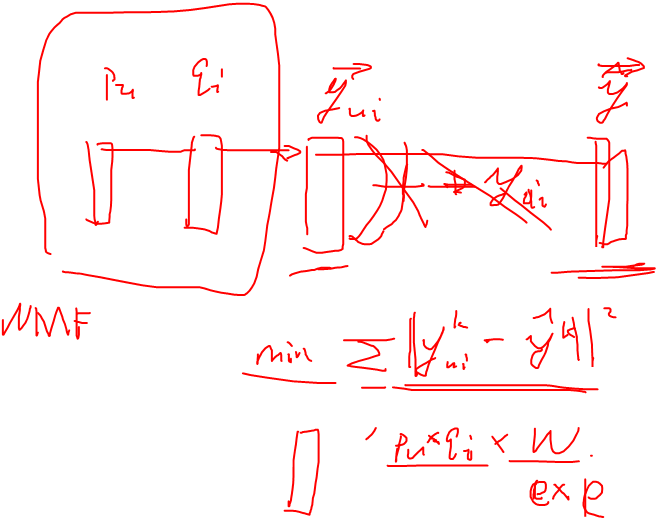 pu qi y⃗ui y⃗
yui
NMF
min Σ ||y^k_ui - ŷ^k||²
pu × qi × W
e × k